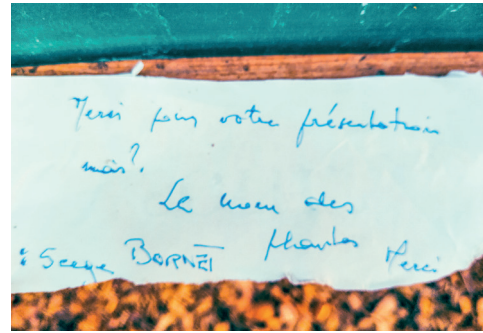 Merci pour votre présentation
mais?
Le nom des
Plantes Merci
: Serge BORNET